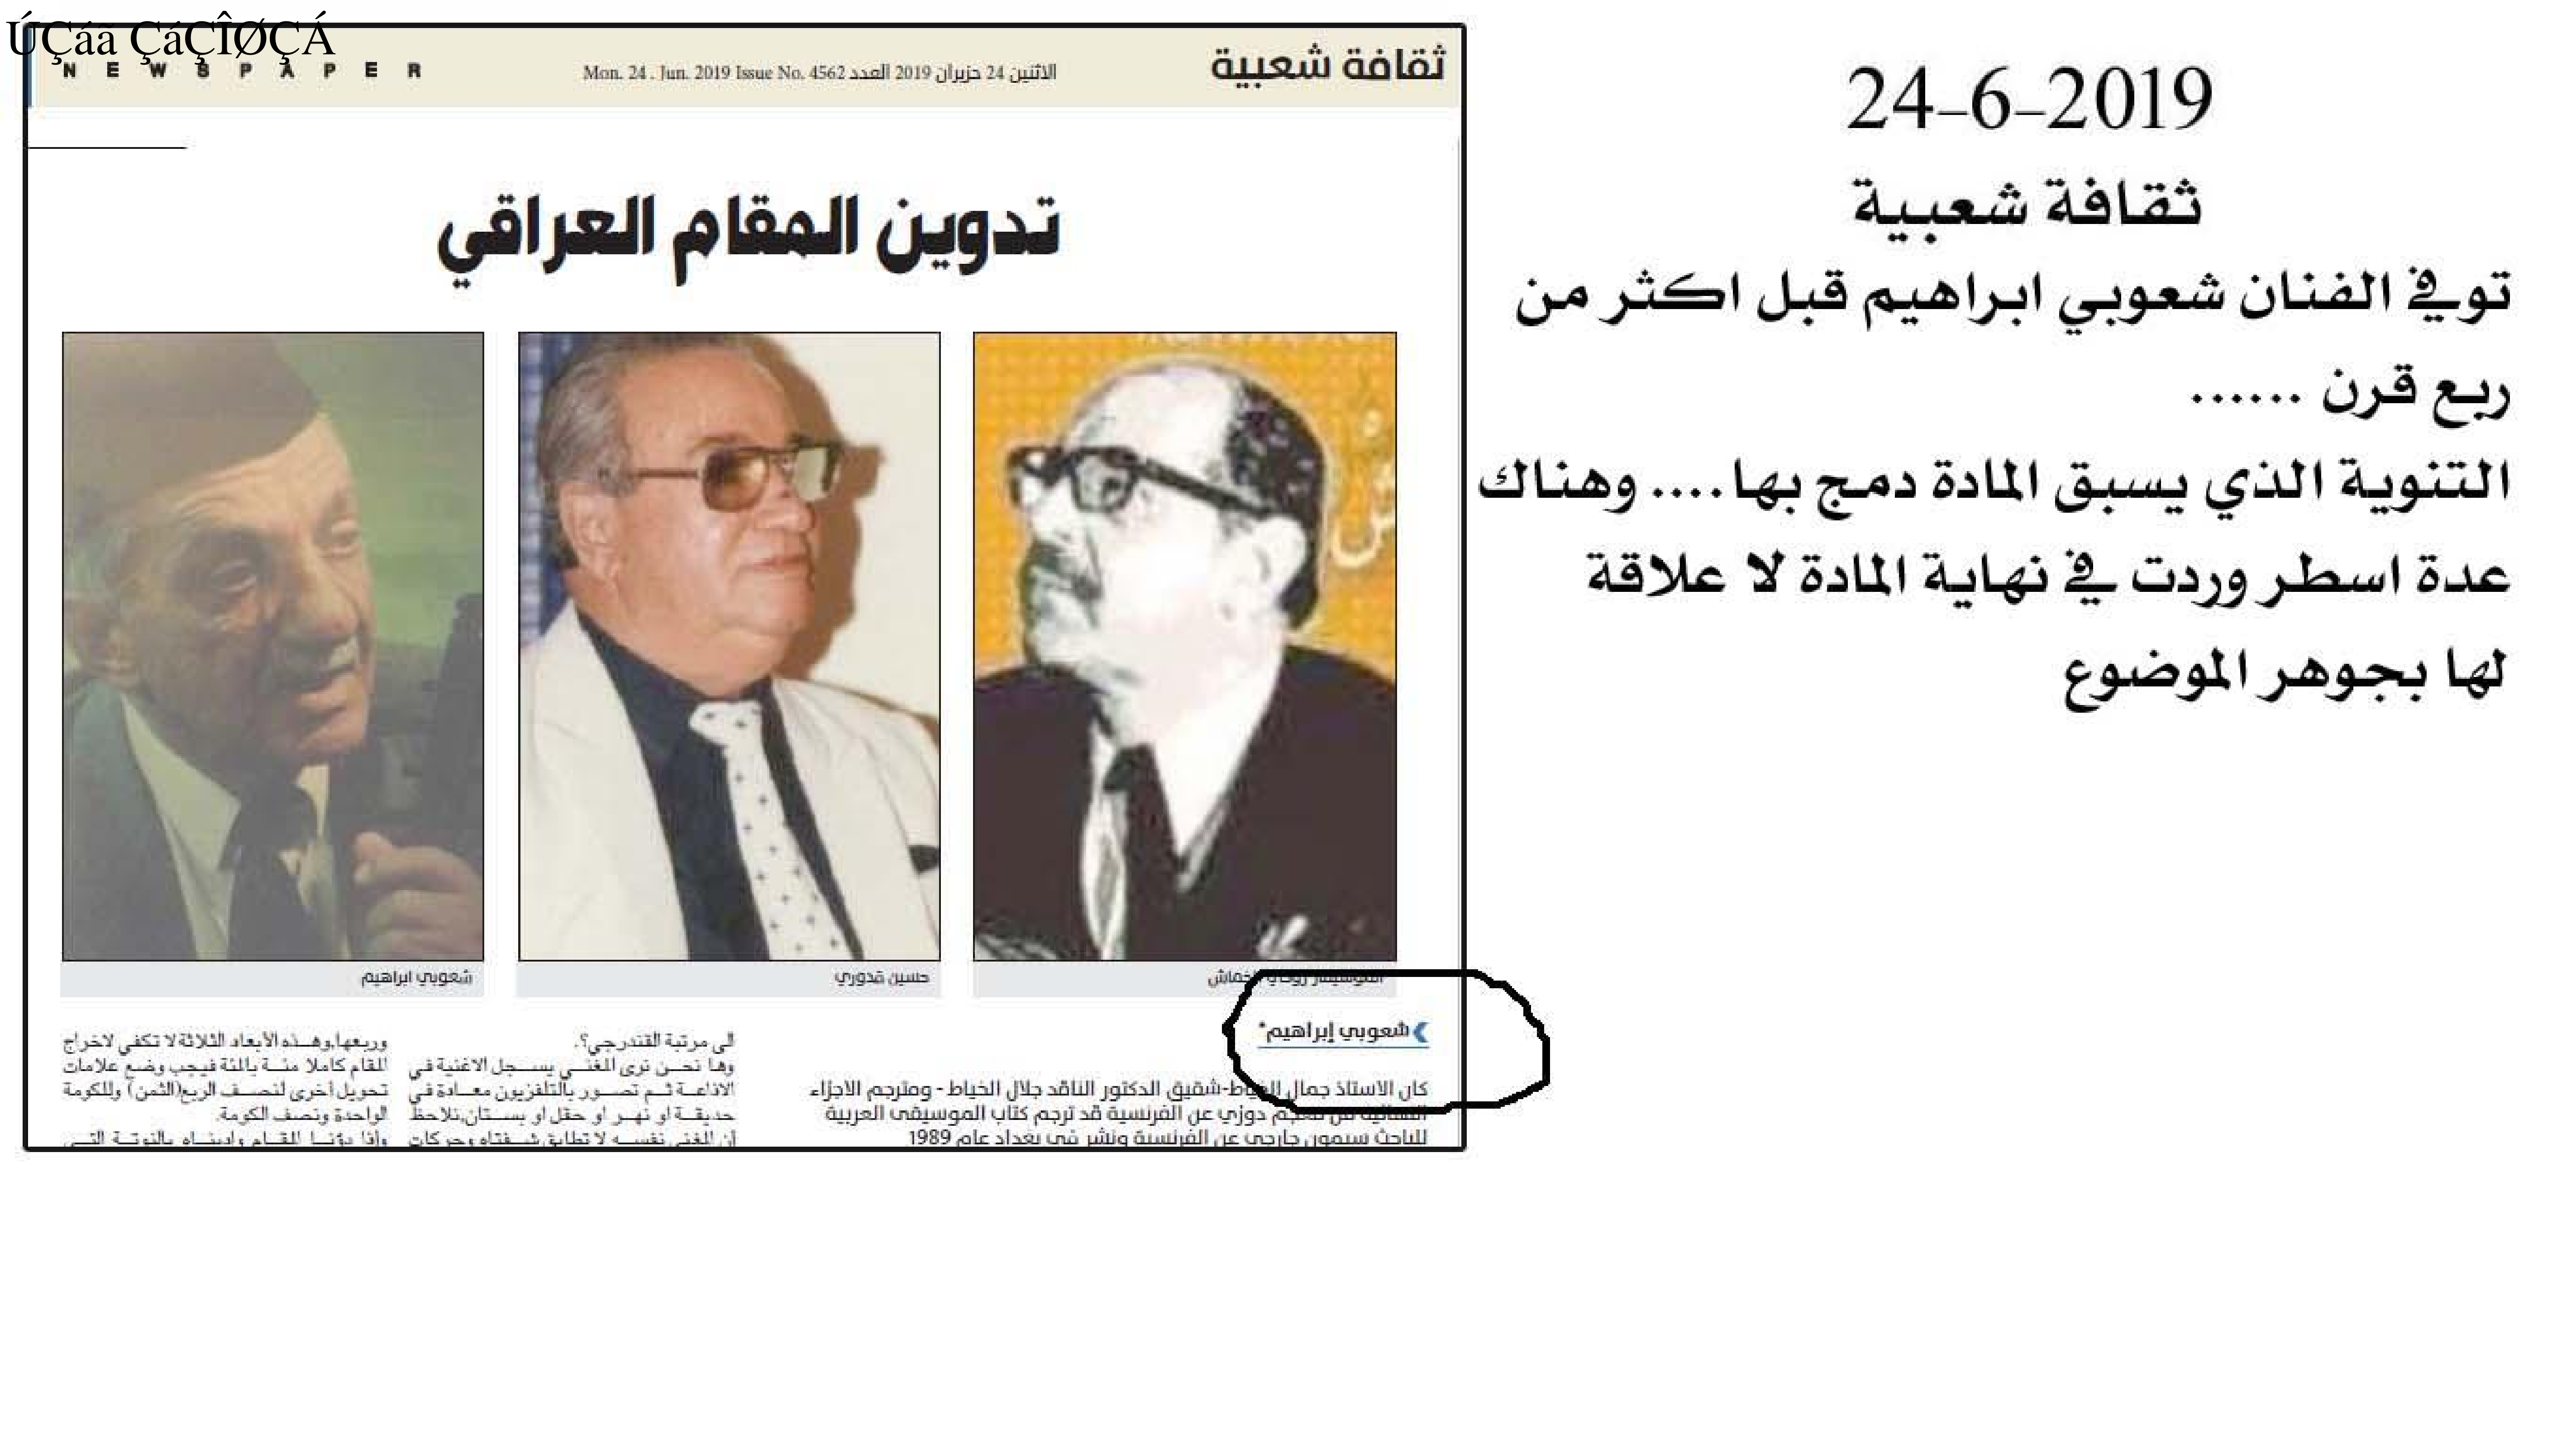 ÚÇáã ÇáÇÎØÇÁ
NEWSPAPER
Mon. 24 . Jun. 2019 Issue No. 4562 الاثنين 24 حزيران 2019 العدد
ثقافة شعبية
تدوين المقام العراقي
روحي الخماش
حسين قدوري
شعوبي ابراهيم
شعوبي إبراهيم*
كان الاستاذ جمال الخياط-شقيق الدكتور الناقد جلال الخياط - ومترجم الاجزاء
من معجم دوزي عن الفرنسية قد ترجم كتاب الموسيقى العربية
للباحث سيمون جارجي عن الفرنسية ونشر في بغداد عام 1989
الى مرتبة القندرجي؟.
وها نحن نرى المغني يسجل الاغنية في
الاذاعة ثم تصور بالتلفزيون معادة في
حديقة او نهر او حقل او بستان,نلاحظ
أن المغني نفسه لا تطابق شفتاه وحركات
وربعها,وهذه الأبعاد الثلاثة لا تكفي لاخراج
المقام كاملا مئة بالمئة فيجب وضع علامات
تحويل أخرى لنصف الربع(الثمن) وللكومة
الواحدة ونصف الكومة.
وإذا دونا المقام واديناه بالنوتة التي
24-6-2019
ثقافة شعبية
توفي الفنان شعوبي ابراهيم قبل اكثر من
ربع قرن ......
التنوية الذي يسبق المادة دمج بها.... وهناك
عدة اسطر وردت في نهاية المادة لا علاقة
لها بجوهر الموضوع